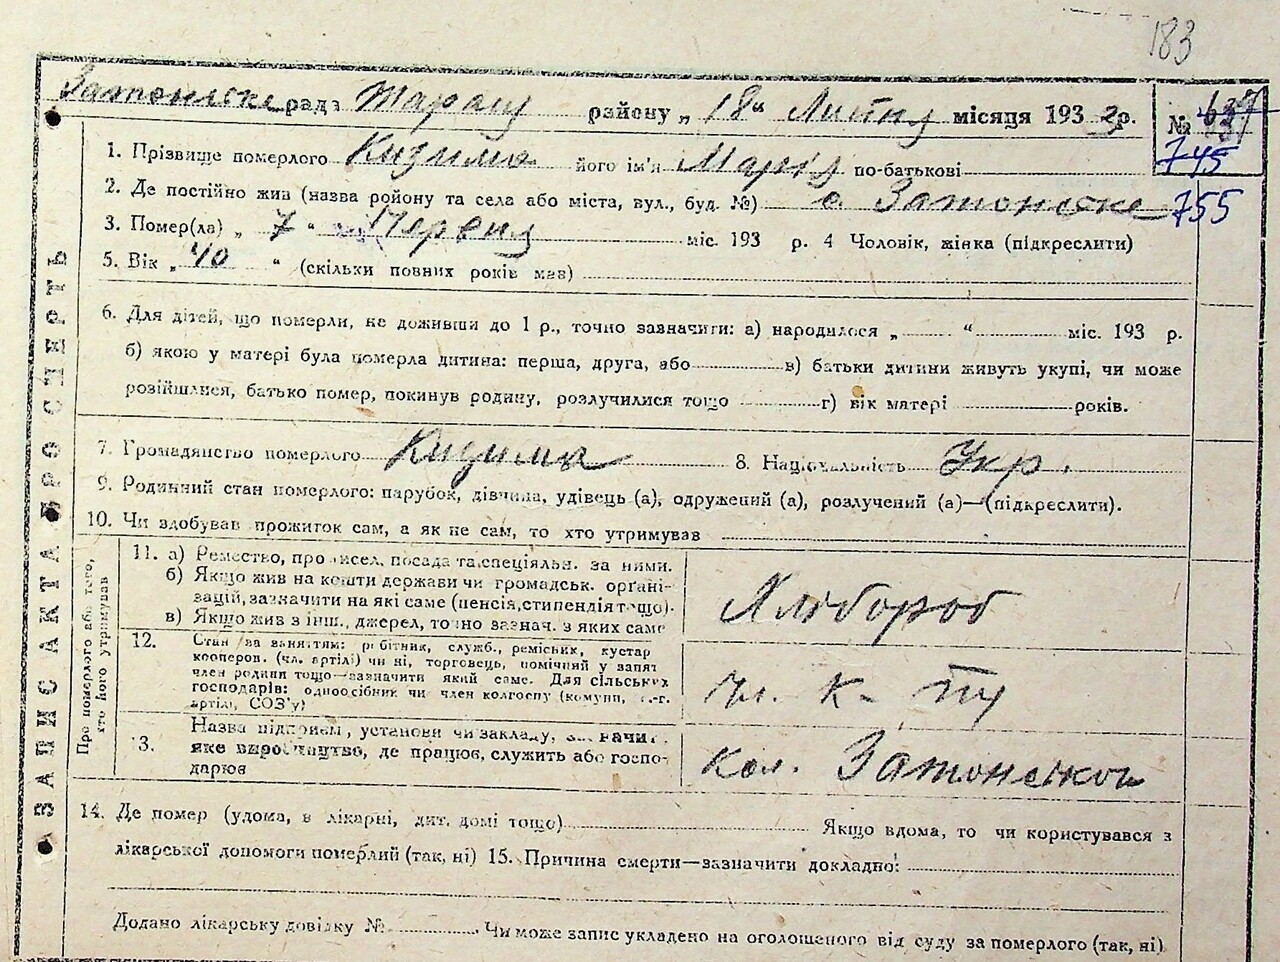 183
Затонське рада Тараш району „18“ Липня місяця 1933р.
№ 637
745
755
1. Прізвище померлого Кизима його ім'я Марія по-батькові
2. Де постійно жив (назва району та села або міста, вул., буд. №) с. Затонське
3. Помер(ла) „ 7 “ Червня міс. 193 р. 4 Чоловік, жінка (підкреслити)
5. Вік „ 40 “ (скільки повних років мав)
6. Для дітей, що померли, не доживши до 1 р., точно зазначити: а) народилося „ “ міс. 193 р.
б) якою у матері була померла дитина: перша, друга, або в) батьки дитини живуть укупі, чи може
розійшлися, батько помер, покинув родину, розлучилися тощо г) вік матері років.
7. Громадянство померлого Кизима 8. Національність Укр.
9. Родинний стан померлого: парубок, дівчина, удівець (а), одружений (а), розлучений (а)—(підкреслити).
10. Чи здобував прожиток сам, а як не сам, то хто утримував
ЗАПИС АКТА ПРО СМЕРТЬ
Про померлого або того, хто його утримував
11. а) Ремество, промисел, посада та спеціяльн. за ними.
б) Якщо жив на кошти держави чи громадськ. орґані-
зацій, зазначити на які саме (пенсія, стипендія тощо).
в) Якщо жив з інш., джерел, точно зазнач. з яких саме
Хлібороб
12. Стан за заняттям: робітник, служб., реміськ., кустар
кооперов. (чл. артілі) чи ні, торговець, помічний у занят
член родини тощо—зазначити який саме. Для сільських
господарів: одноосібник чи член колгоспу (комуни, с.-г.
артілі, СОЗ'у)
чл. к-ту
13. Назва підприєм, установи чи закладу, зазначит.
яке виробництво, де працює, служить або госпо-
дарює
кол. Затонської
14. Де помер (удома, в лікарні, дит. домі тощо) Якщо вдома, то чи користувався з
лікарської допомоги померлий (так, ні) 15. Причина смерти—зазначити докладно:
Додано лікарську довідку № Чи може запис укладено на оголошеного від суду за померлого (так, ні)